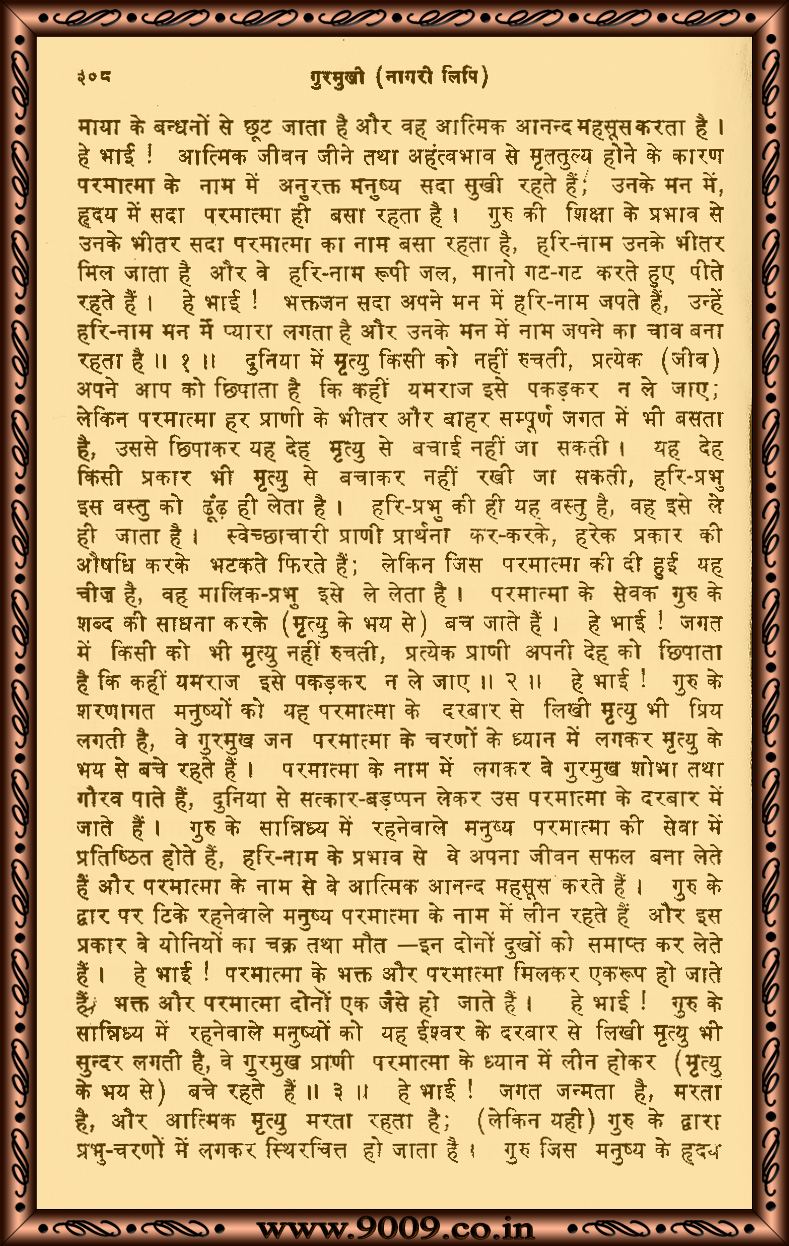 ३०८
गुरमुखी (नागरी लिपि)
माया के बन्धनों से छूट जाता है और वह आत्मिक आनन्द महसूस करता है ।
हे भाई ! आत्मिक जीवन जीने तथा अहंत्वभाव से मृततुल्य होने के कारण
परमात्मा के नाम में अनुरक्त मनुष्य सदा सुखी रहते हैं; उनके मन में,
हृदय में सदा परमात्मा ही बसा रहता है । गुरु की शिक्षा के प्रभाव से
उनके भीतर सदा परमात्मा का नाम बसा रहता है, हरि-नाम उनके भीतर
मिल जाता है और वे हरि-नाम रूपी जल, मानो गट-गट करते हुए पीते
रहते हैं । हे भाई ! भक्तजन सदा अपने मन में हरि-नाम जपते हैं, उन्हें
हरि-नाम मन में प्यारा लगता है और उनके मन में नाम जपने का चाव बना
रहता है ॥ १ ॥ दुनिया में मृत्यु किसी को नहीं रुचती, प्रत्येक (जीव)
अपने आप को छिपाता है कि कहीं यमराज इसे पकड़कर न ले जाए;
लेकिन परमात्मा हर प्राणी के भीतर और बाहर सम्पूर्ण जगत में भी बसता
है, उससे छिपाकर यह देह मृत्यु से बचाई नहीं जा सकती । यह देह
किसी प्रकार भी मृत्यु से बचाकर नहीं रखी जा सकती, हरि-प्रभु
इस वस्तु को ढूंढ़ ही लेता है । हरि-प्रभु की ही यह वस्तु है, वह इसे ले
ही जाता है । स्वेच्छाचारी प्राणी प्रार्थना कर-करके, हरेक प्रकार की
औषधि करके भटकते फिरते हैं; लेकिन जिस परमात्मा की दी हुई यह
चीज है, वह मालिक-प्रभु इसे ले लेता है । परमात्मा के सेवक गुरु के
शब्द की साधना करके (मृत्यु के भय से) बच जाते हैं । हे भाई ! जगत
में किसी को भी मृत्यु नहीं रुचती, प्रत्येक प्राणी अपनी देह को छिपाता
है कि कहीं यमराज इसे पकड़कर न ले जाए ॥ २ ॥ हे भाई ! गुरु के
शरणागत मनुष्यों को यह परमात्मा के दरबार से लिखी मृत्यु भी प्रिय
लगती है, वे गुरमुख जन परमात्मा के चरणों के ध्यान में लगकर मृत्यु के
भय से बचे रहते हैं । परमात्मा के नाम में लगकर वे गुरमुख शोभा तथा
गौरव पाते हैं, दुनिया से सत्कार-बड़प्पन लेकर उस परमात्मा के दरबार में
जाते हैं । गुरु के सान्निध्य में रहनेवाले मनुष्य परमात्मा की सेवा में
प्रतिष्ठित होते हैं, हरि-नाम के प्रभाव से वे अपना जीवन सफल बना लेते
हैं और परमात्मा के नाम से वे आत्मिक आनन्द महसूस करते हैं । गुरु के
द्वार पर टिके रहनेवाले मनुष्य परमात्मा के नाम में लीन रहते हैं और इस
प्रकार वे योनियों का चक्र तथा मौत —इन दोनों दुखों को समाप्त कर लेते
हैं । हे भाई ! परमात्मा के भक्त और परमात्मा मिलकर एकरूप हो जाते
हैं, भक्त और परमात्मा दोनों एक जैसे हो जाते हैं । हे भाई ! गुरु के
सान्निध्य में रहनेवाले मनुष्यों को यह ईश्वर के दरबार से लिखी मृत्यु भी
सुन्दर लगती है, वे गुरमुख प्राणी परमात्मा के ध्यान में लीन होकर (मृत्यु
के भय से) बचे रहते हैं ॥ ३ ॥ हे भाई ! जगत जन्मता है, मरता
है, और आत्मिक मृत्यु मरता रहता है; (लेकिन यही) गुरु के द्वारा
प्रभु-चरणों में लगकर स्थिरचित्त हो जाता है । गुरु जिस मनुष्य के हृदय
www.9009.co.in